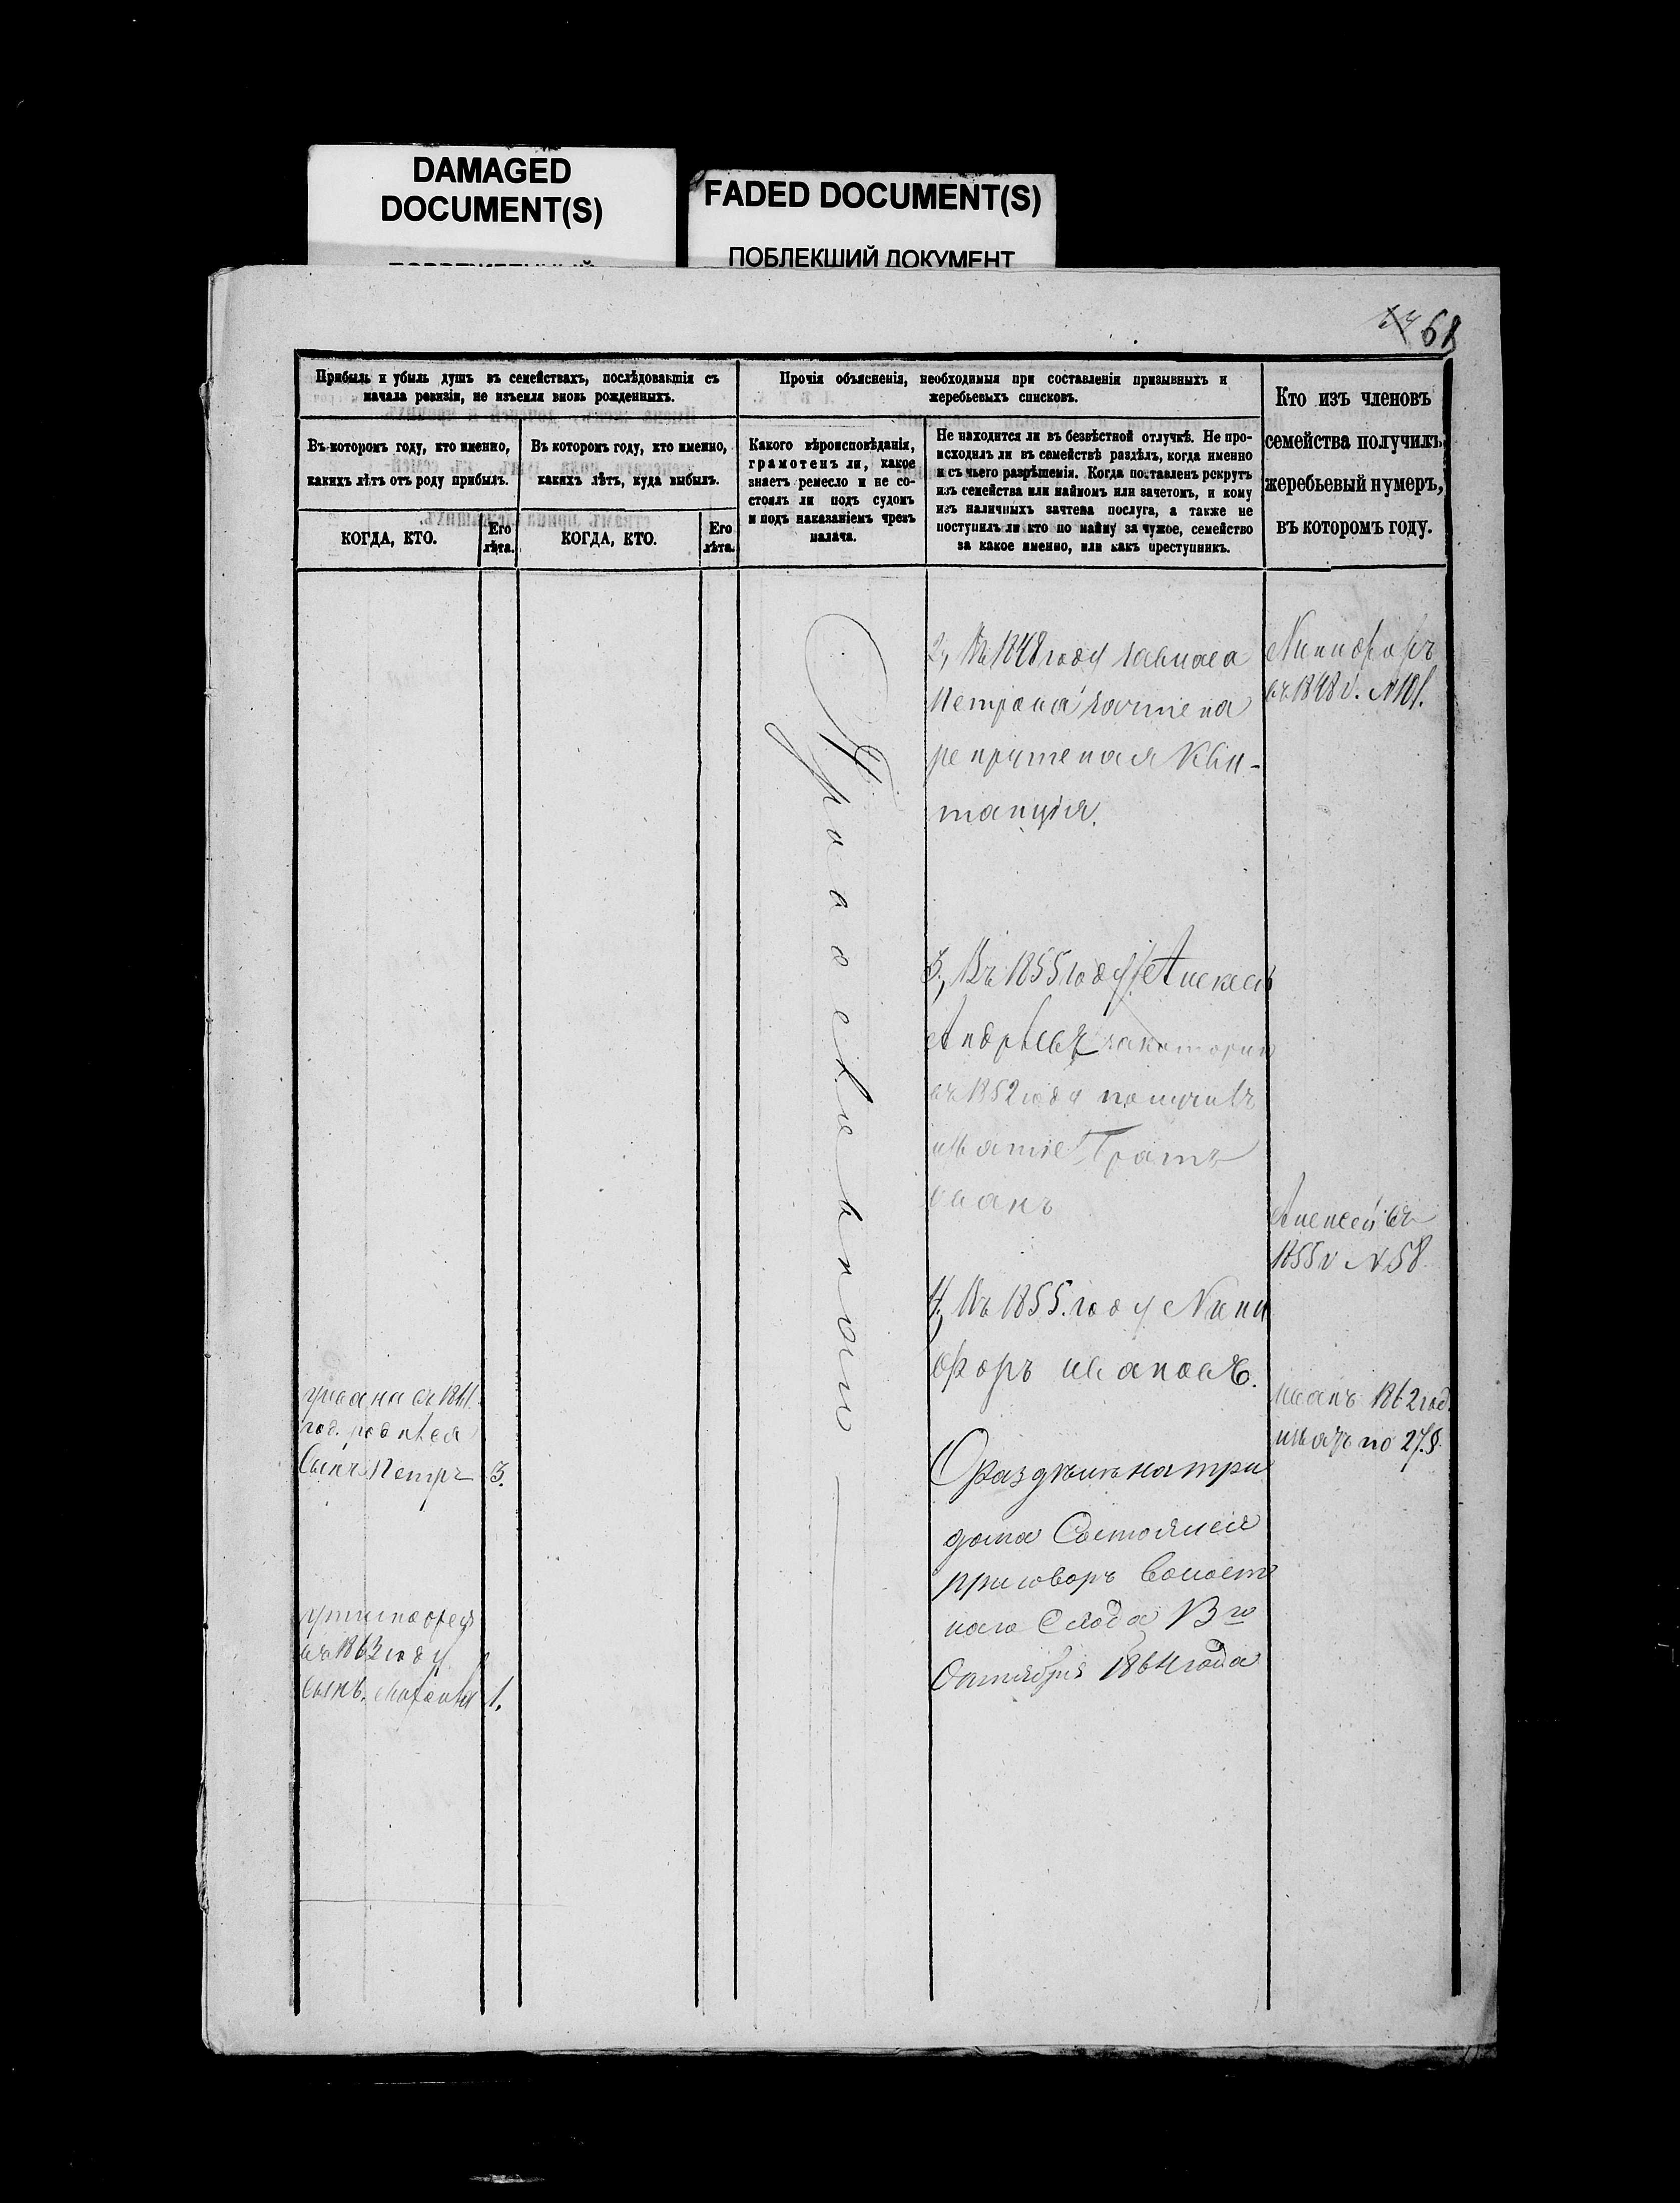 DAMAGED
DOCUMENT(S)
FADED DOCUMENT(S)
ПОБЛЕКШИЙ ДОКУМЕНТ
68
Прибыль и убыль душъ въ семействахъ, послѣдовавшія съ
начала ревизіи, не изъемля вновь рожденныхъ.
Въ котором году, кто именно,
какихъ лѣтъ отъ роду прибылъ.
КОГДА, КТО.
Его
лѣта.
Въ котором году, кто именно,
какихъ лѣтъ, куда выбылъ.
КОГДА, КТО.
Его
лѣта.
Прочія объясненія, необходимыя при составленіи призывныхъ и
жеребьевыхъ списковъ.
Какого вѣроисповѣданія,
грамотенъ ли, какое
знаетъ ремесло и не со-
стоялъ ли подъ судомъ
и подъ наказаніемъ чрезъ
палача.
Не находится ли въ безвѣстной отлучкѣ. Не про-
исходилъ ли въ семействѣ раздѣлъ, когда именно
и съ чьего разрѣшенія. Когда поставленъ рекрутъ
изъ семейства или наймомъ или зачетомъ, и кому
изъ наличныхъ зачтена послуга, а также не
поступилъ ли кто по найму за чужое, семейство
за какое именно, или какъ преступникъ.
Кто изъ членовъ
семейства получилъ
жеребьевый нумеръ,
въ котором году.
у Ивана въ 1861
год. родился
Сынъ Петръ 3.
въ 1863 году
Сынъ 1.
Православнаго
2, Въ 1848 году
Петрова зачтена
рекрутская Кви-
танция.
3, Въ 1855 году Алексей
Андреевъ
въ 1852 году получилъ
Братъ
Иванъ
4, Въ 1855. году Ники
форъ Ивановъ.
Раздѣлъ на три
дома Состоялся
приговоръ Волост
наго Схода 3го
Октября 1864 года
Никифоръ
въ 1848 г. № 101.
Алексей въ
1855 г № 58
Иванъ 1862 год.